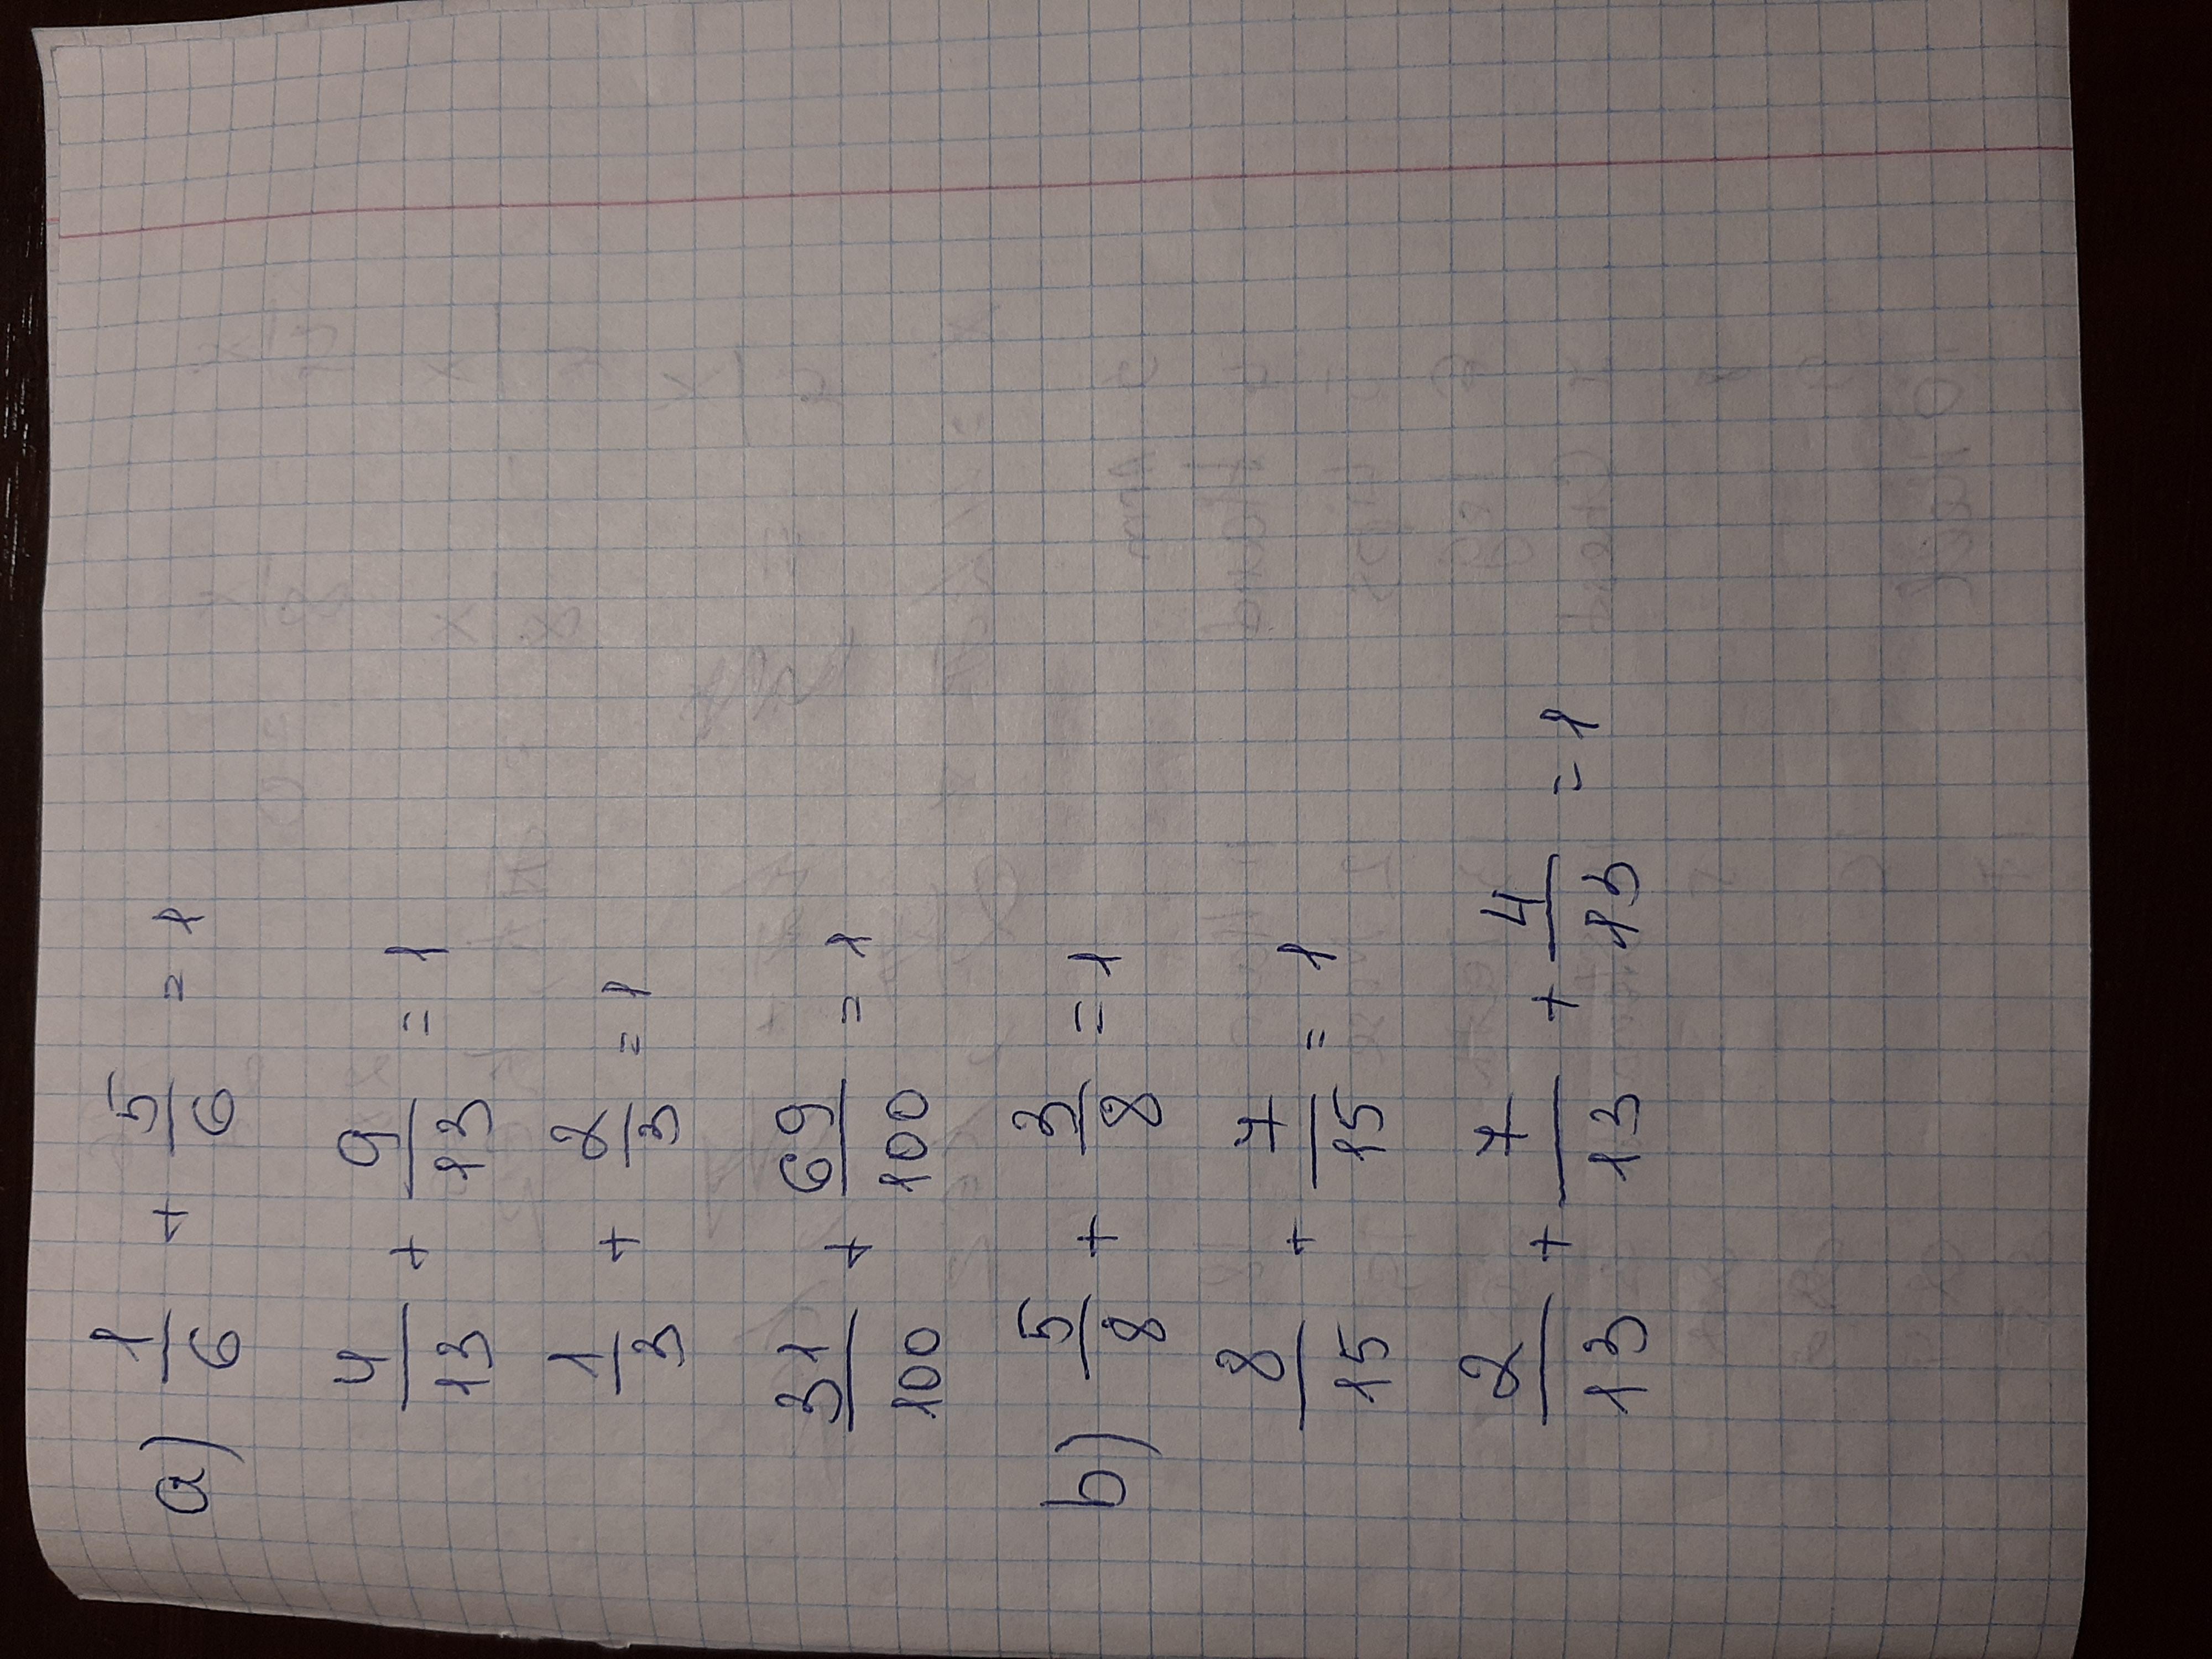 a) 1/6 + 5/6 = 1
4/13 + 9/13 = 1
1/3 + 2/3 = 1
31/100 + 69/100 = 1
b) 5/8 + 3/8 = 1
8/15 + 7/15 = 1
2/13 + 7/13 + 4/13 = 1